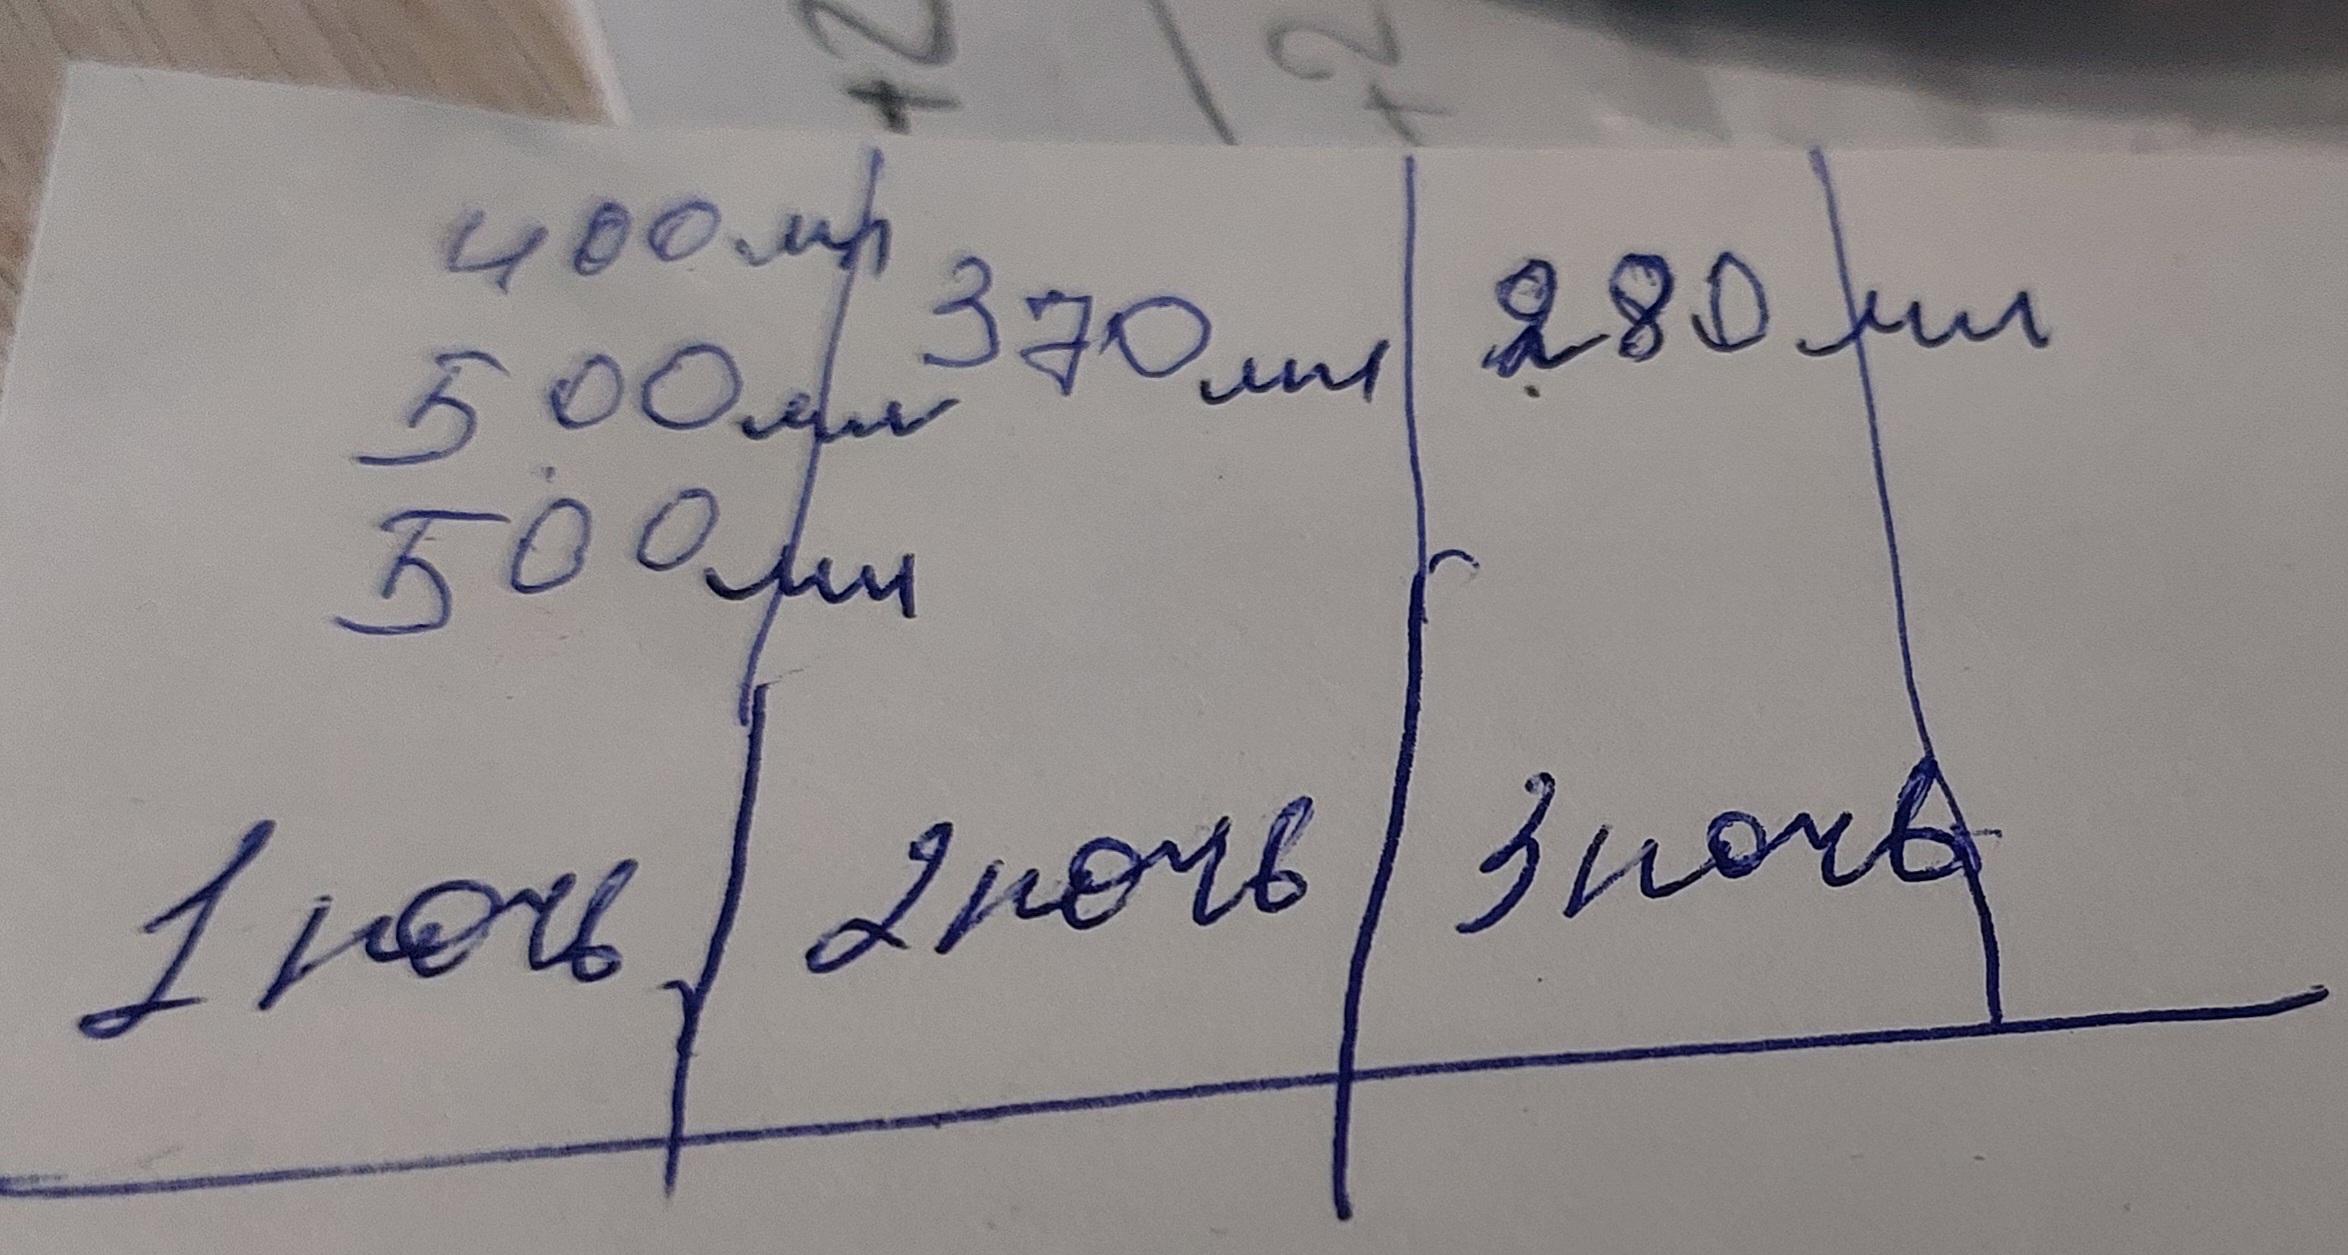 +2
+2
400мл
500мл
500мл
370мл
280мл
1 ночь
2 ночь
3 ночь